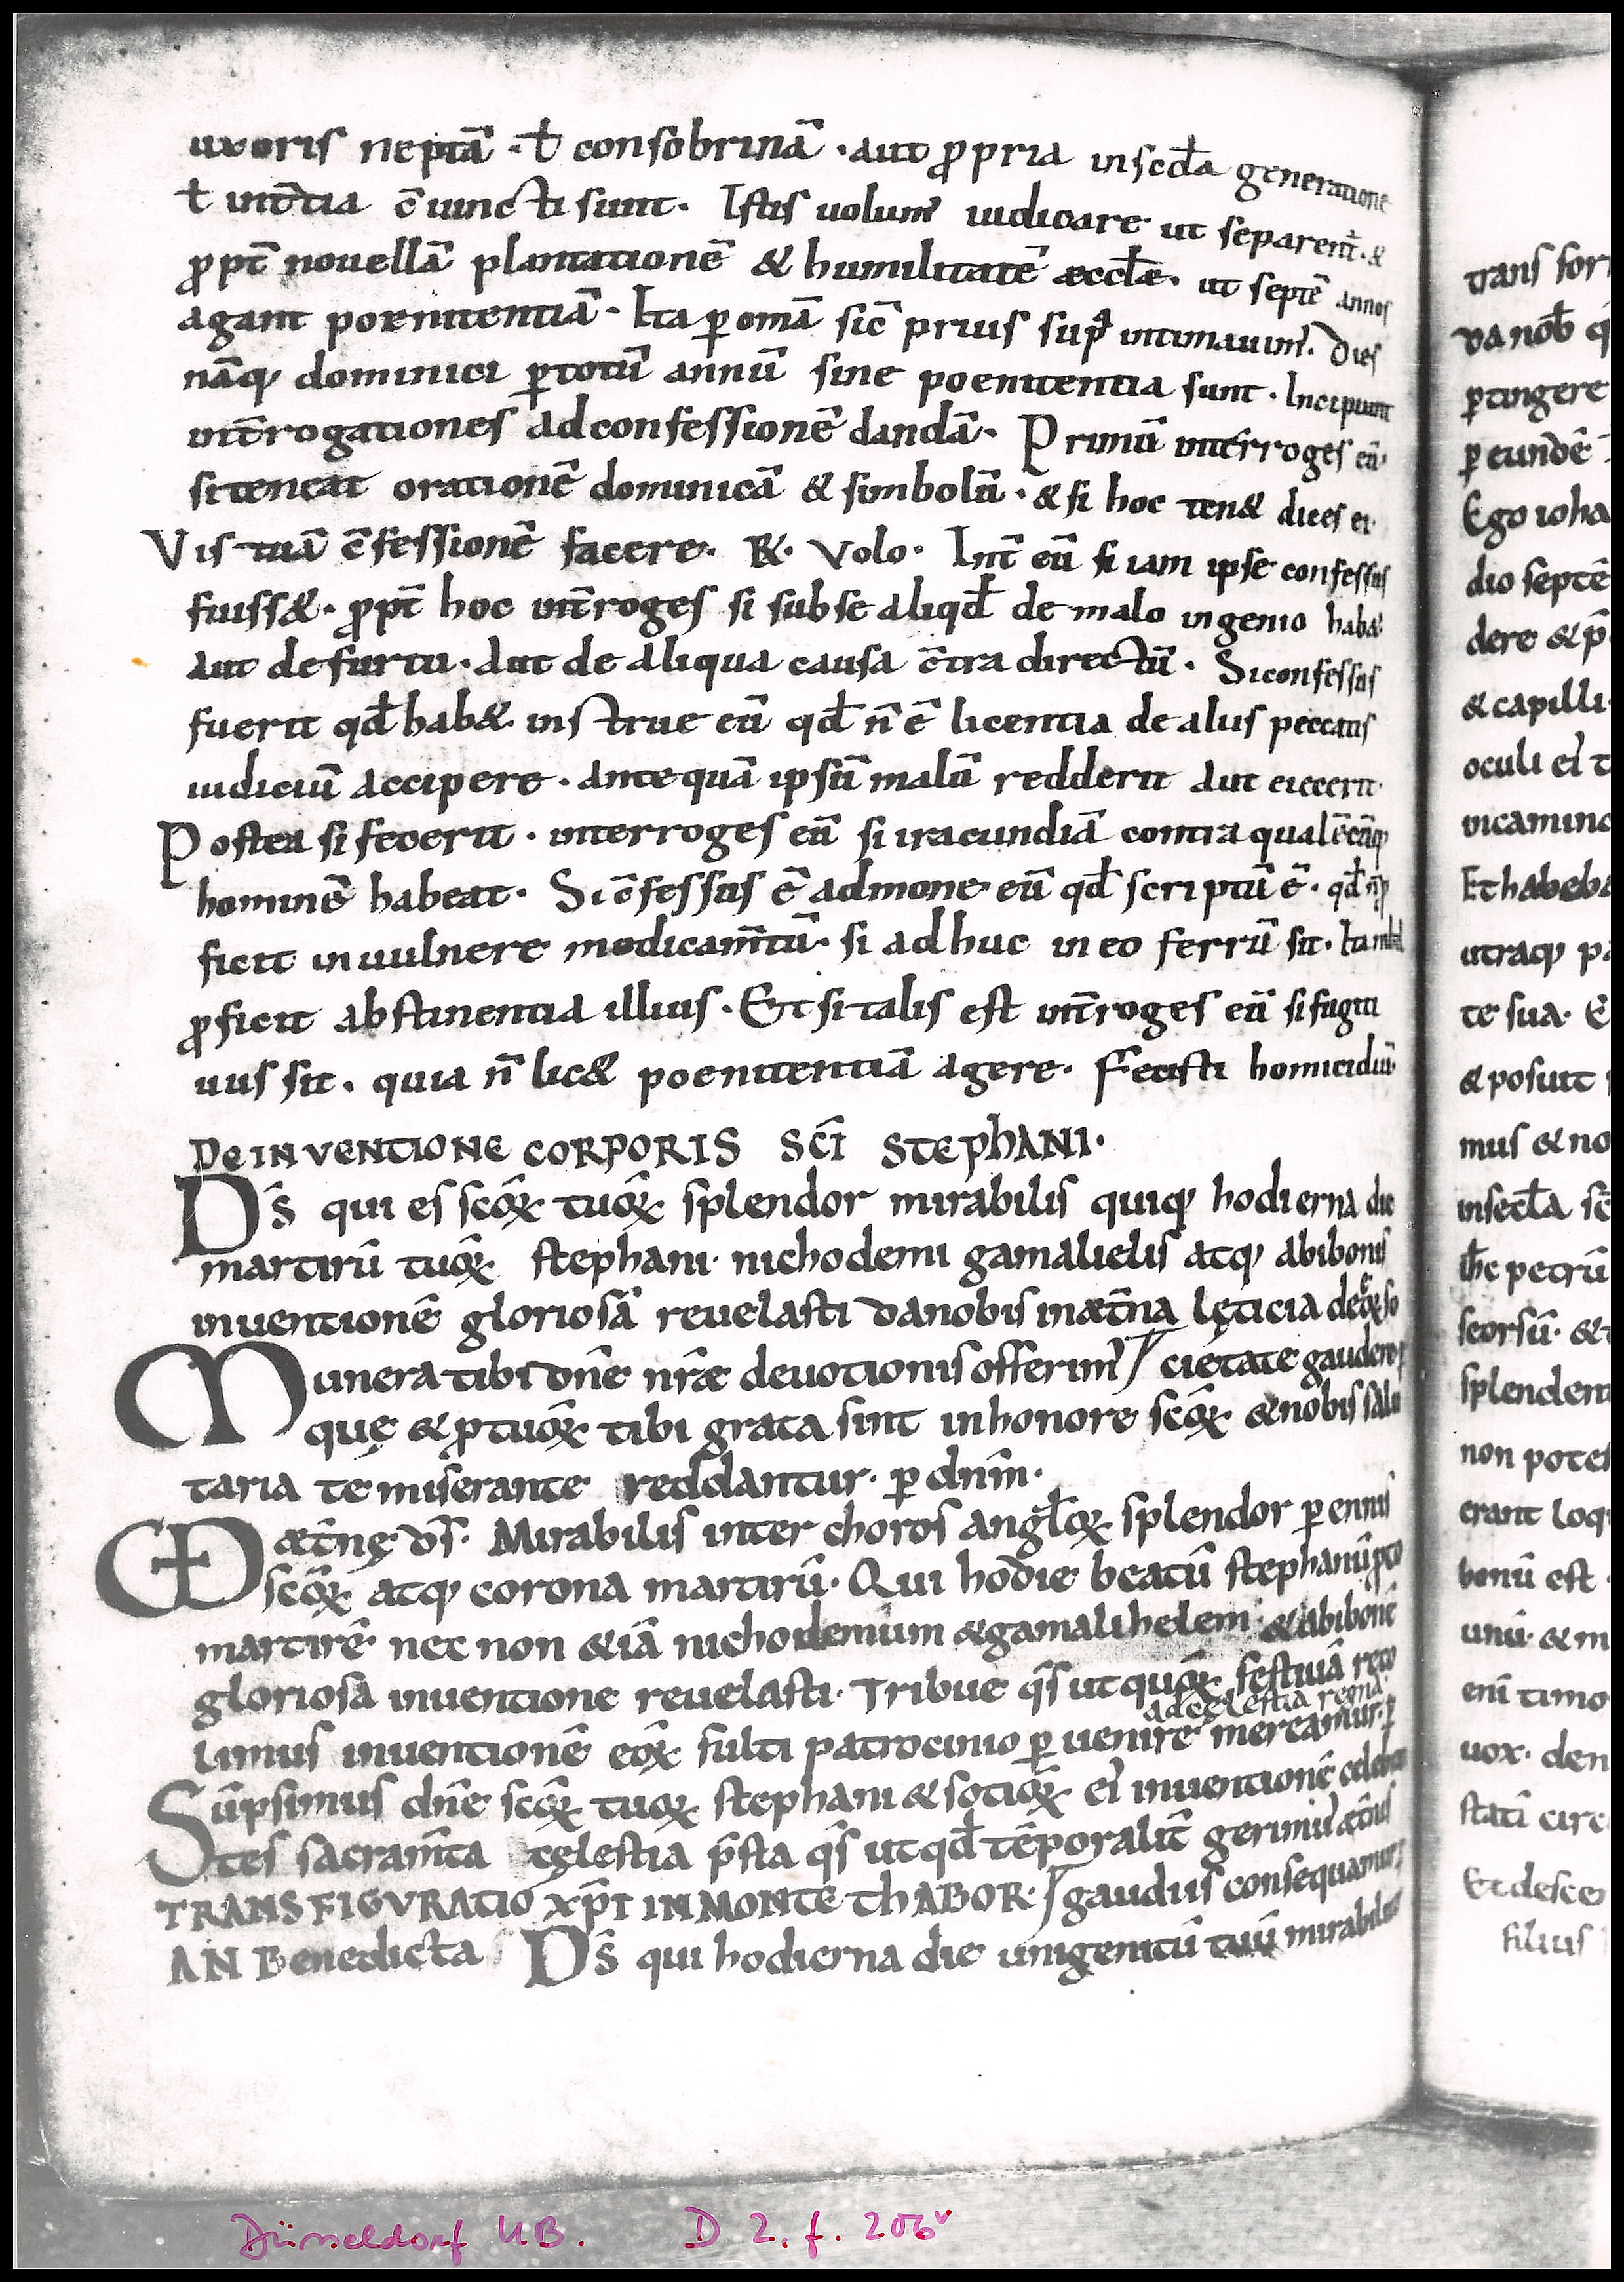 uxoris neptā · ł consobrinā · aut ꝓpria insecđa generatione
ł int̄tia c̄iuncti sunt · Istis uolum᾽ iudicare ut separent̄ · &
ꝓpt̄ nouellā plantationē & humilitatē æccłæ · ut septē annos
agant poenitentiā · Ita ꝑ omā sic̄ prius supᵃ intimauim᾽ · Dies
nāq; dominici ꝑ totū annū sine poenitentia sunt · Incipiunt
int̄rogationes ad confessionē dandā · Primū interroges eū ·
si teneat orationē dominicā & simbolū · & si hoc ten& dices ei ·
Vis tuā c̄fessionē facere · R̷ · Volo · Int̄ eū si iam ipse confessus
fuiss& · ꝓpt̄ hoc int̄roges si sub se aliqđ de malo ingenio hab&
aut de furtu · aut de aliqua causa c̄tra directū · Si confessus
fuerit qđ hab& instrue eū qđ n̄ ē licentia de aliis peccatis
iudiciū accipere · antequā ipsū malū reddert̄ aut eiecerit ·
Postea si fecerit · interroges eū si iracundiā contra qualēcūq;
hominē habeat · Si c̄fessus ē admone eū qđ scriptū ē · qđ n̄ ꝓ
ficit in uulnere medicam̄tū · si adhuc in eo ferrū sit · Ita nihil
ꝓficit abstinentia illius · Et si talis est int̄roges eū si fugiti
uus sit · quia n̄ lic& poenitentiā agere · Fecisti homicidiū ·
DE INVENTIONE CORPORIS SC̄I STEPHANI ·
D̄s qui es sc̄oꝝ tuoꝝ splendor mirabilis quiq; hodierna die
martirū tuoꝝ stephani · nichodemi gamalielis atq; abibonis
inuentionē gloriosā reuelasti da nobis in æt̄na lęticia de eoꝝ so
Munera tibi dn̄e nr̄æ deuotionis offerim᾽ / cietate gaudere ꝑ
quę & ꝓ tuoꝝ tibi grata sint in honore sc̄oꝝ & nobis salu
taria te miserante reddantur · ꝑ dn̄m ·
VD æt̄nę ds̄ · Mirabilis inter choros angłoꝝ splendor ꝑennis
sc̄oꝝ atq; corona martirū · Qui hodie beatū stephanū ꝓto
martirē nec non &iā nichodemum & gamalihelem · & abibonē
gloriosa inuentione reuelasti · Tribue qs̄ ut quoꝝ festiuā reco
ad cęlestia regna
limus inuentionē eoꝝ fulti patrocinio ꝑuenire mereamur · ꝑ
Sūpsimus dn̄e sc̄oꝝ tuoꝝ stephani & sotioꝝ ei᾽ inuentionē celebra
tes sacram̄ta cęlestia p̄sta qs̄ ut qđ tēporalit̄ gerimus æt̄nis
TRANSFIGVRATIO XP̄I IN MONTE THABOR · / gaudiis consequamur ·
AN Benedicta D̄s qui hodierna die unigenitū tuū mirabilit̄
trans for
da nob̄ q
ꝑtingere
ꝑ eundē
Ego ioha
dio septē
dere & p̄
& capilli
oculi ei᾽ t
uicamino
Et habeba
utraq; pa
te sua · E
& posuit
mus & no
insecđa sc̄
ħc petrū
seorsū · &
splendent
non potes
erant loq
bonū est
unū · & m
eni timo
uox · den
statī circ
Et desce
filius
Düsseldorf UB. D 2. f. 206ᵛ